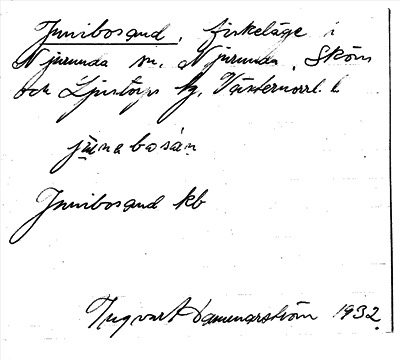 Junibosand, fiskeläge i
Njurunda sn, Njurunda, Sköns
och Ljustorps tg, Västernorrl. l
jùnabosán
Junibosand kb
Ingvar Hammarström 1932